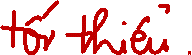 tối thiểu.